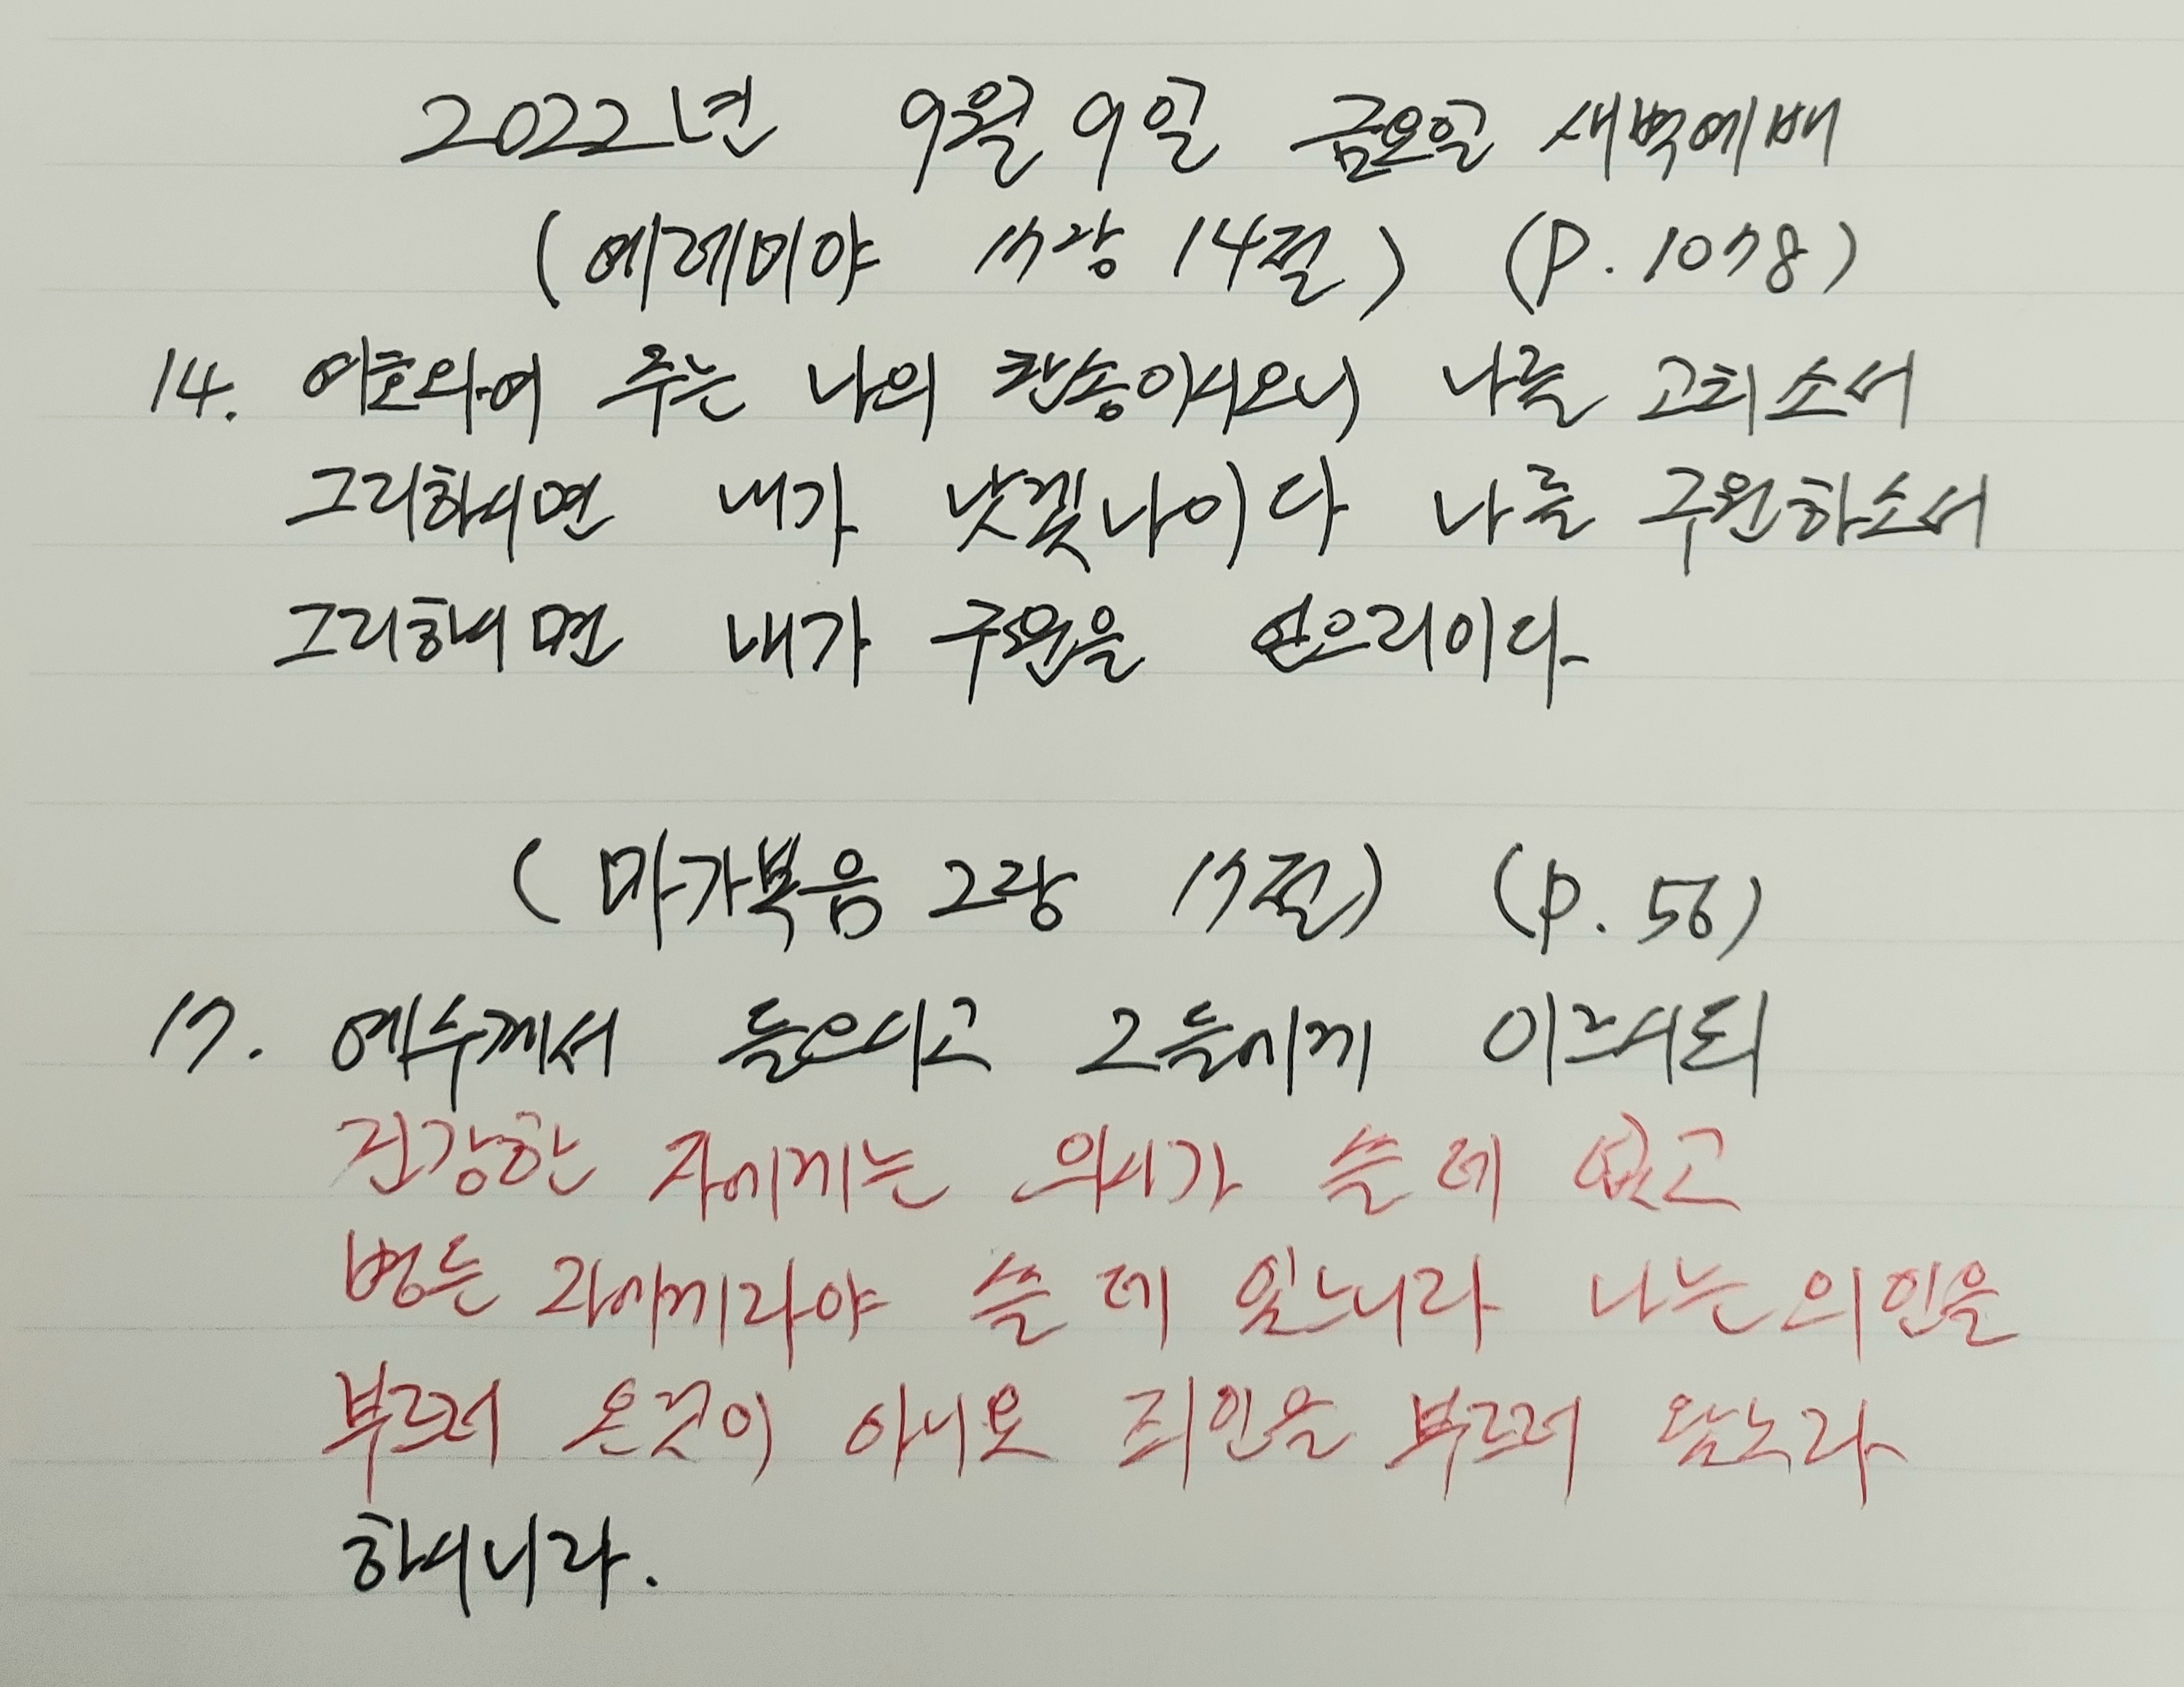 2022년 9월 9일 금요일 새벽예배
(예레미야 17장 14절) (P. 1078)
14. 여호와여 주는 나의 찬송이시오니 나를 고치소서
그리하시면 내가 낫겠나이다 나를 구원하소서
그리하시면 내가 구원을 얻으리이다
(마가복음 2장 17절) (P. 56)
17. 예수께서 들으시고 그들에게 이르시되
건강한 자에게는 의사가 쓸 데 없고
병든 자에게라야 쓸 데 있느니라 나는 의인을
부르러 온것이 아니요 죄인을 부르러 왔노라
하시니라.